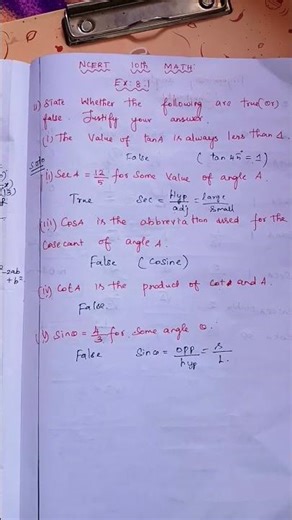 NCERT 10th MATH:
Ex: 8.1
11) State whether the following are true (or)
false. Justify your answer.
(i) The Value of tanA is always less than 1.
Soln
False (tan 45° = 1)
(ii) Sec A = 12/5 for some value of angle A.
True Sec = Hyp/adj = large/small
(iii) CosA is the abbrevtation used for the
Cosecant of angle A.
False (Cosine)
(iv) CotA is the product of cot and A.
False.
(v) Sinθ = 4/3 for some angle θ.
False Sinθ = opp/hyp = s/L.
-2ab
+b²